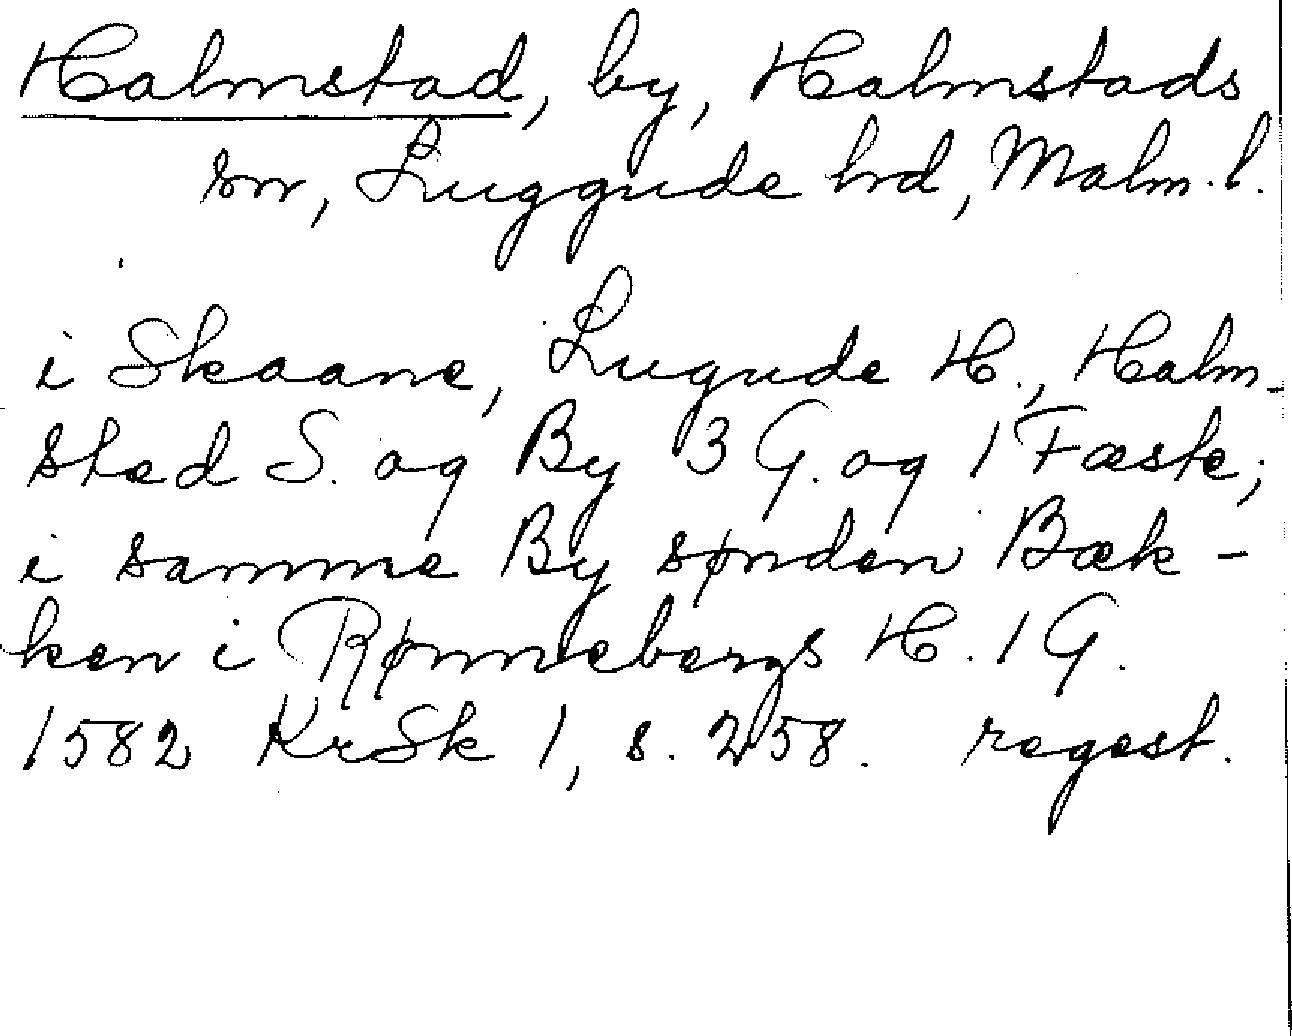 Halmstad, by, Halmstads
sn, Luggude hd, Malm. l.
i Skaane, Lugude H., Halm-
sted S. og By 3 G. og 1 Fæste;
i samme By sønden Bæk-
ken i Rønnebergs H. 1 G.
1582 KrSk 1, s. 258. regest.